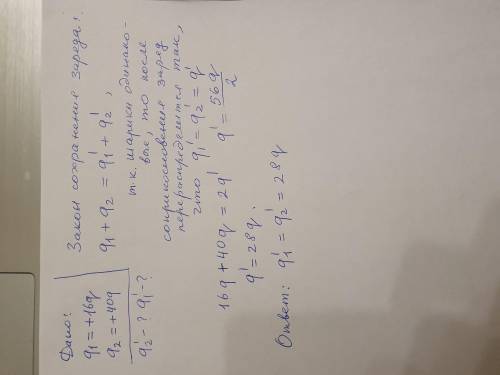 Дано:
q₁ = +16q
q₂ = +40q
q₂' - ? q₁' - ?
Закон сохранения заряда:
q₁ + q₂ = q₁' + q₂',
т.к. шарики одинако-
вые, то после
соприкосновения заряд
перераспределится так,
что q₁' = q₂' = q'
16q + 40q = 2q' q' = 56q/2
q' = 28q.
Ответ: q₁' = q₂' = 28q